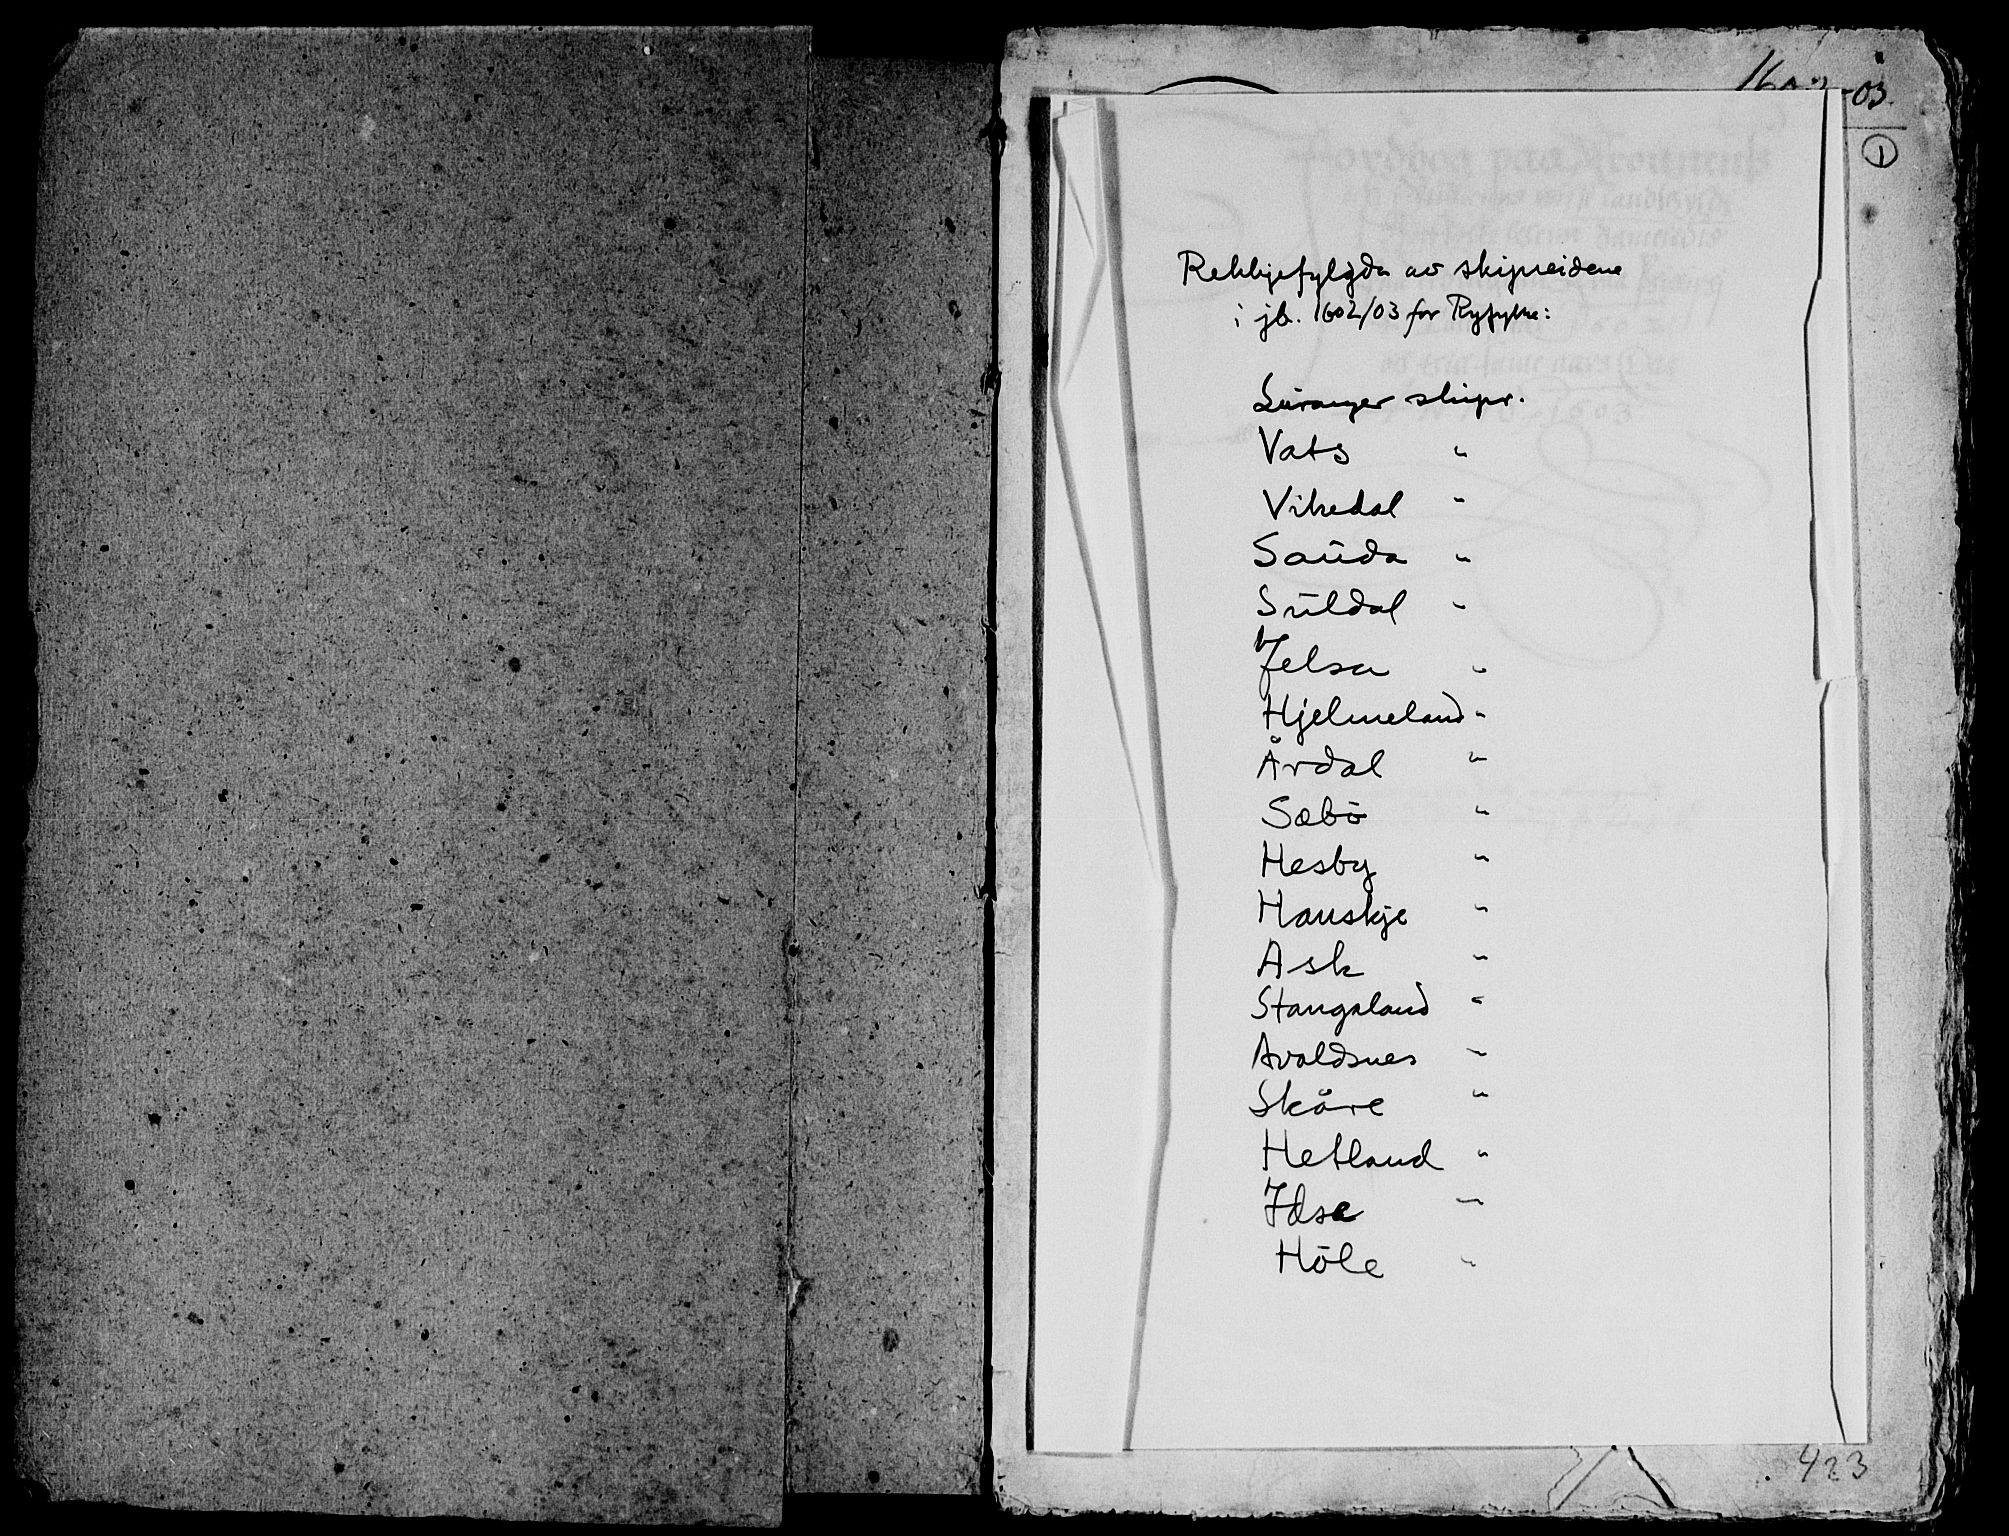 1602-03.
1
Rekkjefylgda av skipreidene
i jb. 1602/03 for Ryfylke:
Lüranger skipr.
Vats "
Vikedal "
Saŭda "
Sŭldal "
Jelsa "
Hjelmeland "
Årdal "
Sæbö "
Hesby "
Hauskje "
Ask "
Stangaland "
Avaldsnes "
Skåre "
Hetland "
Idse "
Höle "
423